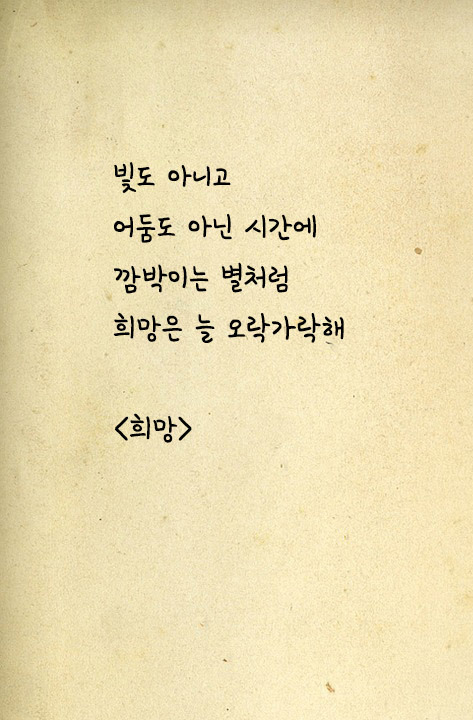 빛도 아니고
어둠도 아닌 시간에
깜박이는 별처럼
희망은 늘 오락가락해
<희망>